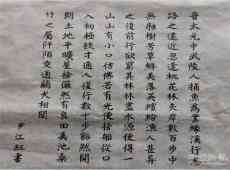 晉太元中武陵人捕魚為業緣溪行忘
路之遠近忽逢桃花林夾岸數百步中
無雜樹芳草鮮美落英繽紛漁人甚異
之復前行欲窮其林林盡水源便得一
山山有小口彷彿若有光便捨船從口
入初極狹才通人復行數十步豁然開
朗土地平曠屋舍儼然有良田美池桑
竹之屬阡陌交通雞犬相聞
尹江紅書